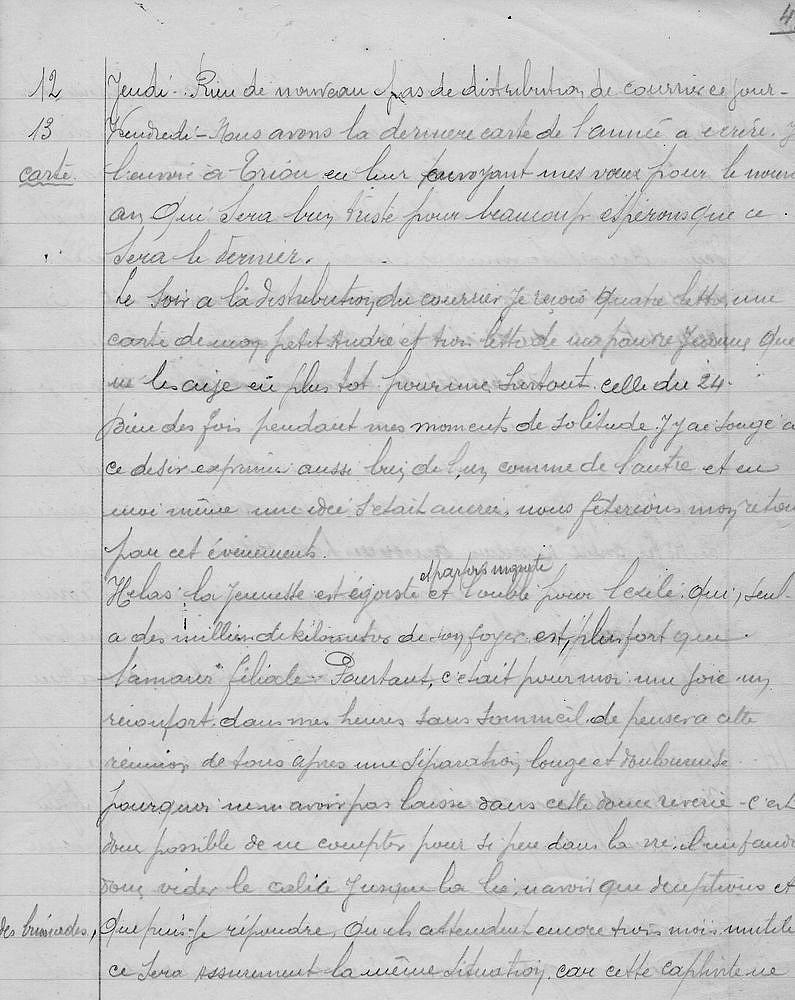 4
12 Jeudi - Rien de nouveau pas de distribution de courrier ce jour -
13 Vendredi - Nous avons la derniere carte de l'année a ecrire. J
carte. l'envoie à Triou en leur envoyant mes vœux pour le nouve
an qui sera bien triste pour beaucoup espérons que ce
sera le dernier.
Le soir a la distribution du courrier je reçois quatre lettres, une
carte de mon petit André et trois lettres de ma pauvre Jeanne que
ne les ai je eu plus tot pour une surtout celle du 24.
Bien des fois pendant mes moments de solitude j'y ai songé a
ce desir exprimé aussi bien de l'un comme de l'autre et en
moi même une idée s'était ancrée, nous fêterions mon retou
par cet événement.
et parfois ingrate
Helas la jeunesse est égoïste et l'oubli pour l'exilé qui, seul
a des milliers de kilometres de son foyer est plus fort que
l'amour filiale - Pourtant, c'etait pour moi une joie un
réconfort dans mes heures sans sommeil de penser a cette
réunion de tous apres une séparation longue et douloureuse
pourquoi ne m'avoir pas laissé dans cette douce reverie - c'est
donc possible de ne compter pour si peu dans la vie. Il me faudr
donc vider le calice jusqu'a la lie, n'avoir que déceptions et
des brimades, que puis-je répondre, qu'ils attendent encore trois mois inutile
ce sera assurement la même situation, car cette captivité ne